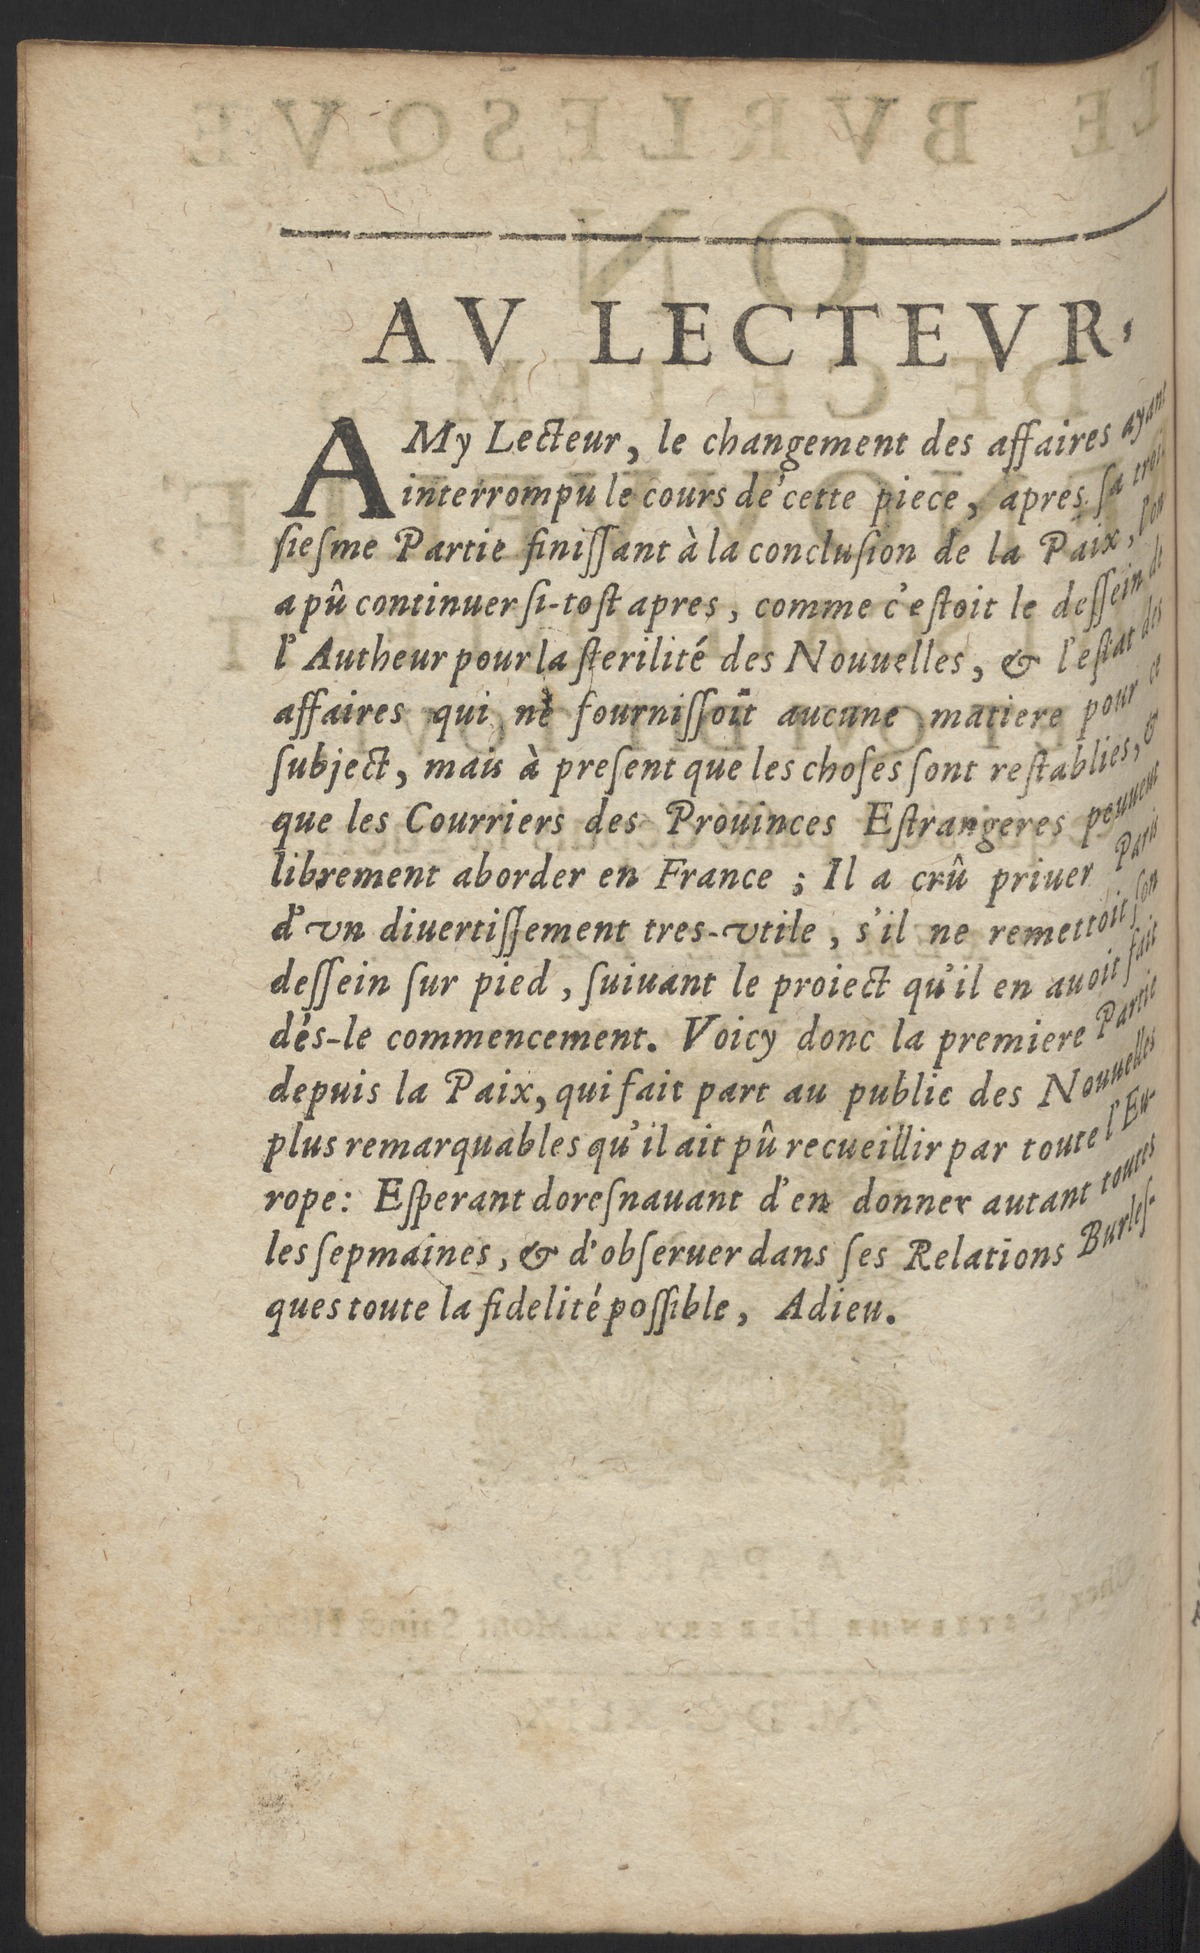 AV LECTEVR,
AMy Lecteur, le changement des affaires ayant
interrompu le cours de cette piece, apres ſa troi-
ſieſme Partie finiſſant à la concluſion de la Paix, l'on
a pû continuer ſi-toſt apres, comme c'eſtoit le deſſein de
l'Autheur pour la ſterilité des Nouuelles, & l'eſtat des
affaires qui ne fourniſſoit aucune matiere pour ce
ſubject, mais à preſent que les choſes ſont reſtablies, &
que les Courriers des Prouinces Eſtrangeres peuuent
librement aborder en France ; Il a crû priuer Paris
d'vn diuertiſſement tres-vtile, s'il ne remettoit ſon
deſſein ſur pied, ſuiuant le proiect qu'il en auoit fait
dés-le commencement. Voicy donc la premiere Partie
depuis la Paix, qui fait part au public des Nouuelles
plus remarquables qu'il ait pû recueillir par toute l'Eu-
rope: Eſperant doreſnauant d'en donner autant toutes
les ſepmaines, & d'obſeruer dans ſes Relations Burleſ-
ques toute la fidelité poſſible, Adieu.